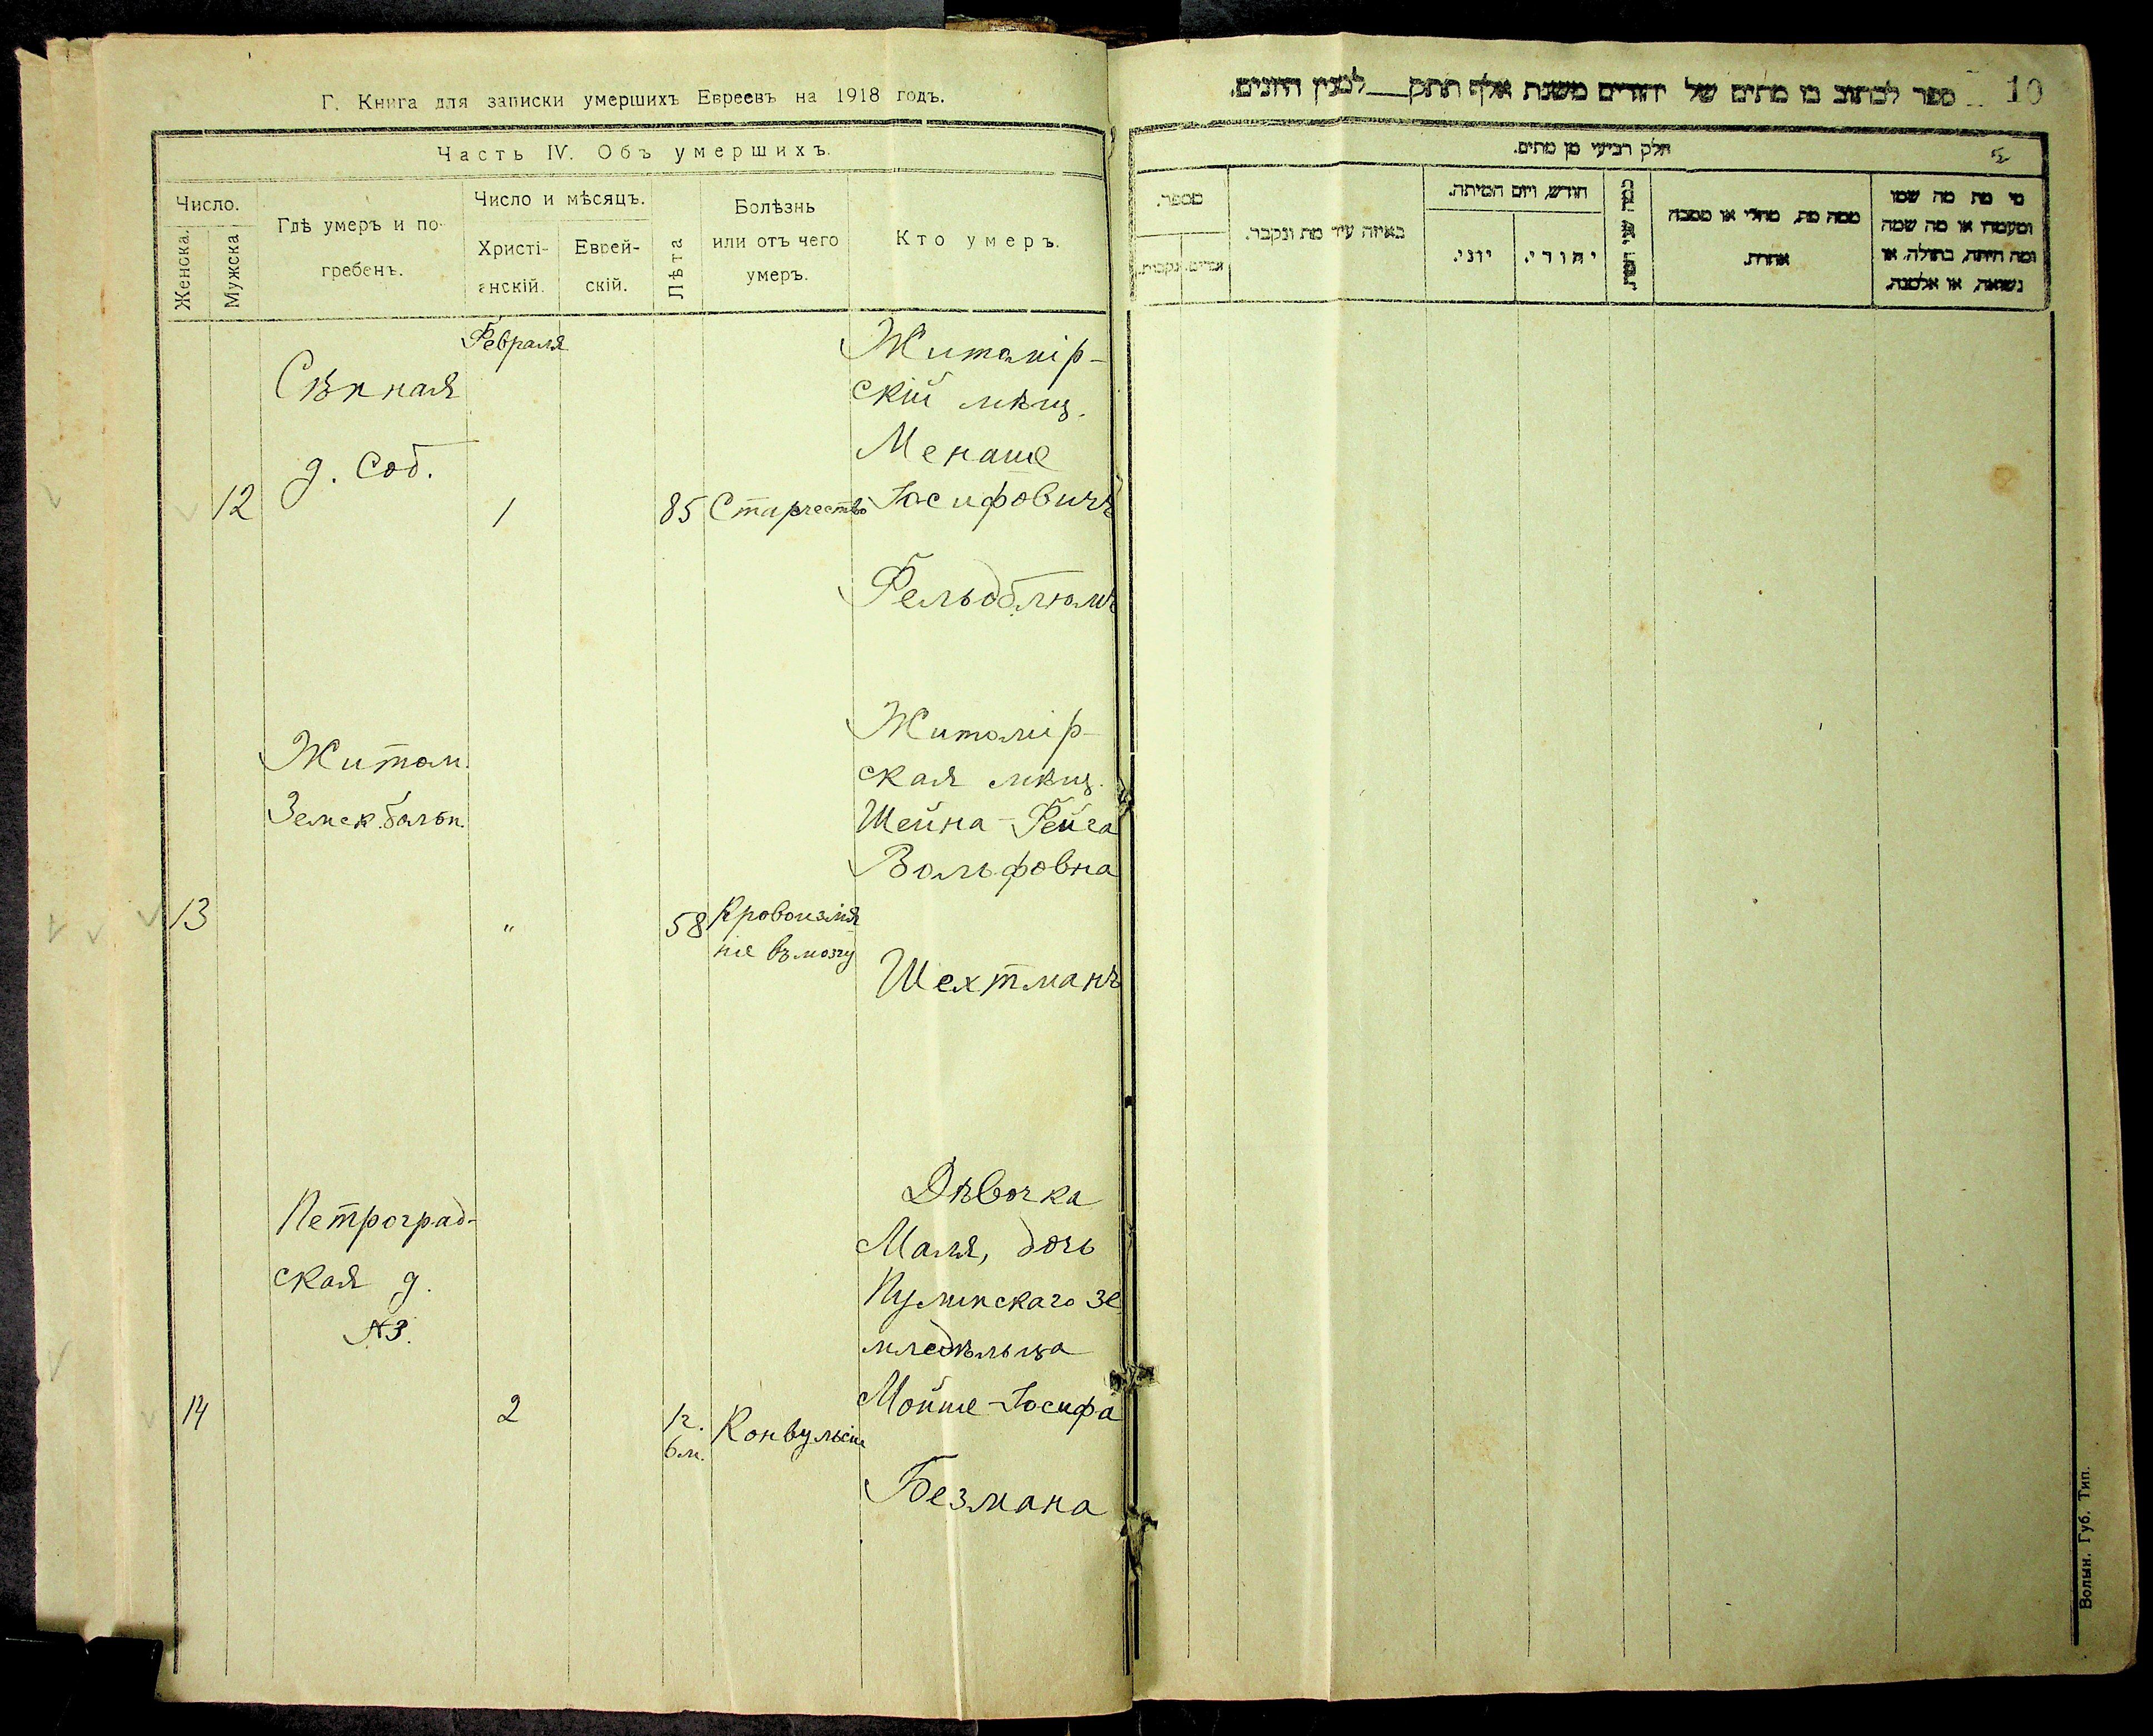 Г. Книга для записки умершихъ Евреевъ на 1918 годъ.
Часть IV. Объ умершихъ.
Число.
Женска.
Мужска
Гдѣ умеръ и по-
гребенъ.
Число и мѣсяцъ.
Христі-
анскій.
Еврей-
скій.
Лѣта
Болѣзнь
или отъ чего
умеръ.
Кто умеръ.
Февраля
Сѣнная
д. Соб.
12
1
85
Старчество
Житомір-
скій мѣщ.
Менаше
Іосифовичъ
Фельдблюмъ
Житом.
Земск. больн.
13
"
58
Кровоизлія
ніе въ мозгу
Житомір-
ская мѣщ.
Шейна-Фейга
Вольфовна
Шехтманъ
Петроград-
ская д.
№3.
14
2
1г.
6м.
Конвульсіи
Дѣвочка
Маля, дочь
Пулинскаго зе
мледѣльца
Мойше-Іосифа
Безмана
10
ספר לכתוב בו מתים של יהודים משנת אלף תתק למנין היונים.
חלק רביעי מן מתים.
מספר.
זכרים.
נקבות.
באיזה עיר מת ונקבר.
חודש, ויום המיתה.
יוני.
יהודי.
ממה מת, מחלי או מסבה
אחרת.
מי מת מה שמו
ומעמדו או מה שמה
ומה היתה, בתולה, או
נשואה, או אלמנה.
Волын. Губ. Тип.